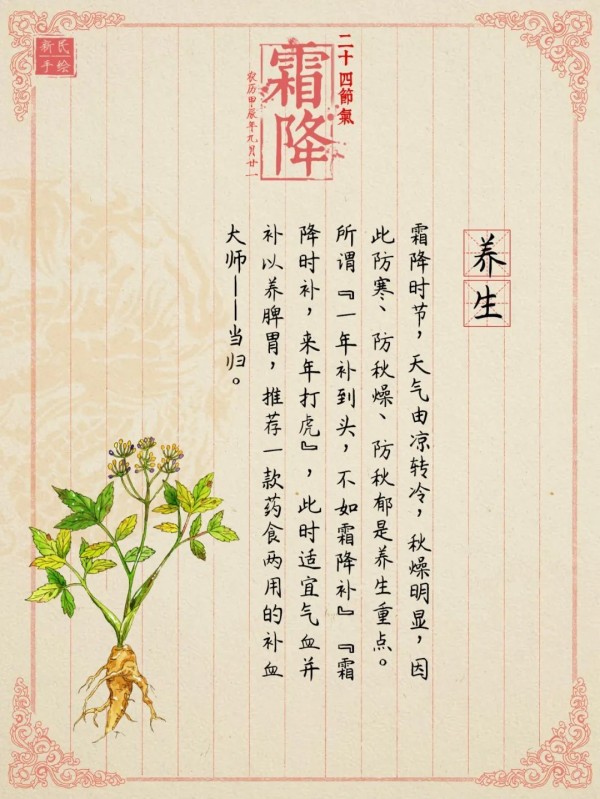 二十四節氣
霜降
农历甲辰年九月廿一
新氏
手绘
养生
霜降时节，天气由凉转冷，秋燥明显，因
此防寒、防秋燥、防秋郁是养生重点。
所谓『一年补到头，不如霜降补』『霜
降时补，来年打虎』，此时适宜气血并
补以养脾胃，推荐一款药食两用的补血
大师——当归。